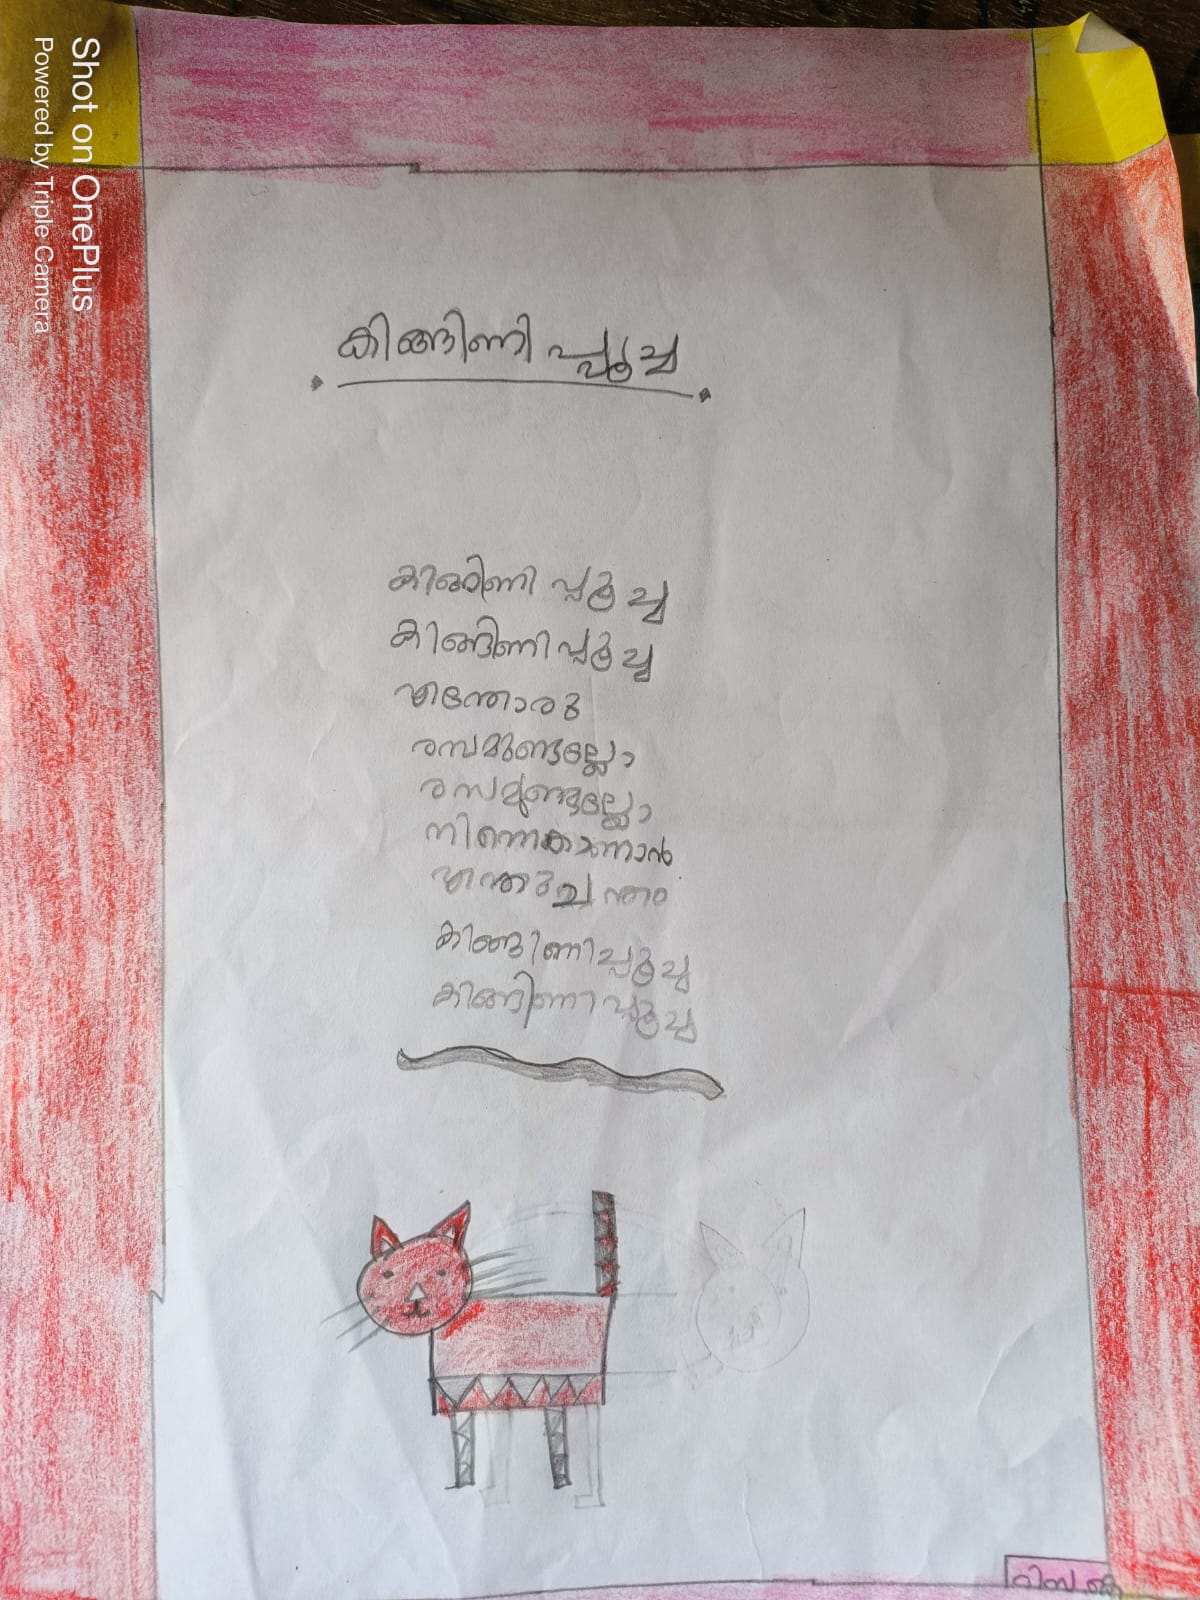 Shot on OnePlus
Powered by Triple Camera
കിങ്ങിണി പ്പൂച്ച
കിങ്ങിണി പ്പൂച്ച
കിങ്ങിണി പ്പൂച്ച
എന്തോരു
രസമുണ്ടല്ലോ
രസമുണ്ടല്ലോ
നിന്നെകാണാൻ
എന്തുചന്തം
കിങ്ങിണിപ്പൂച്ച
കിങ്ങിണിപ്പൂച്ച